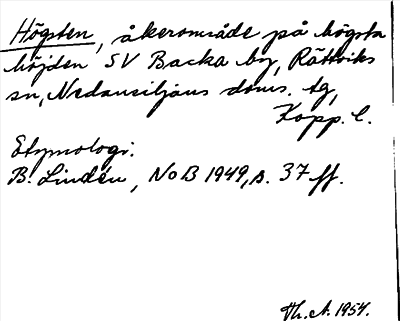 Högsten, åkerområde på högsta
höjden SV Backa by, Rättviks
sn, Nedansiljans doms. tg,
Kopp. l.
Etymologi:
B. Lindén, NoB 1949, s. 37 ff.
Th. A. 1954.